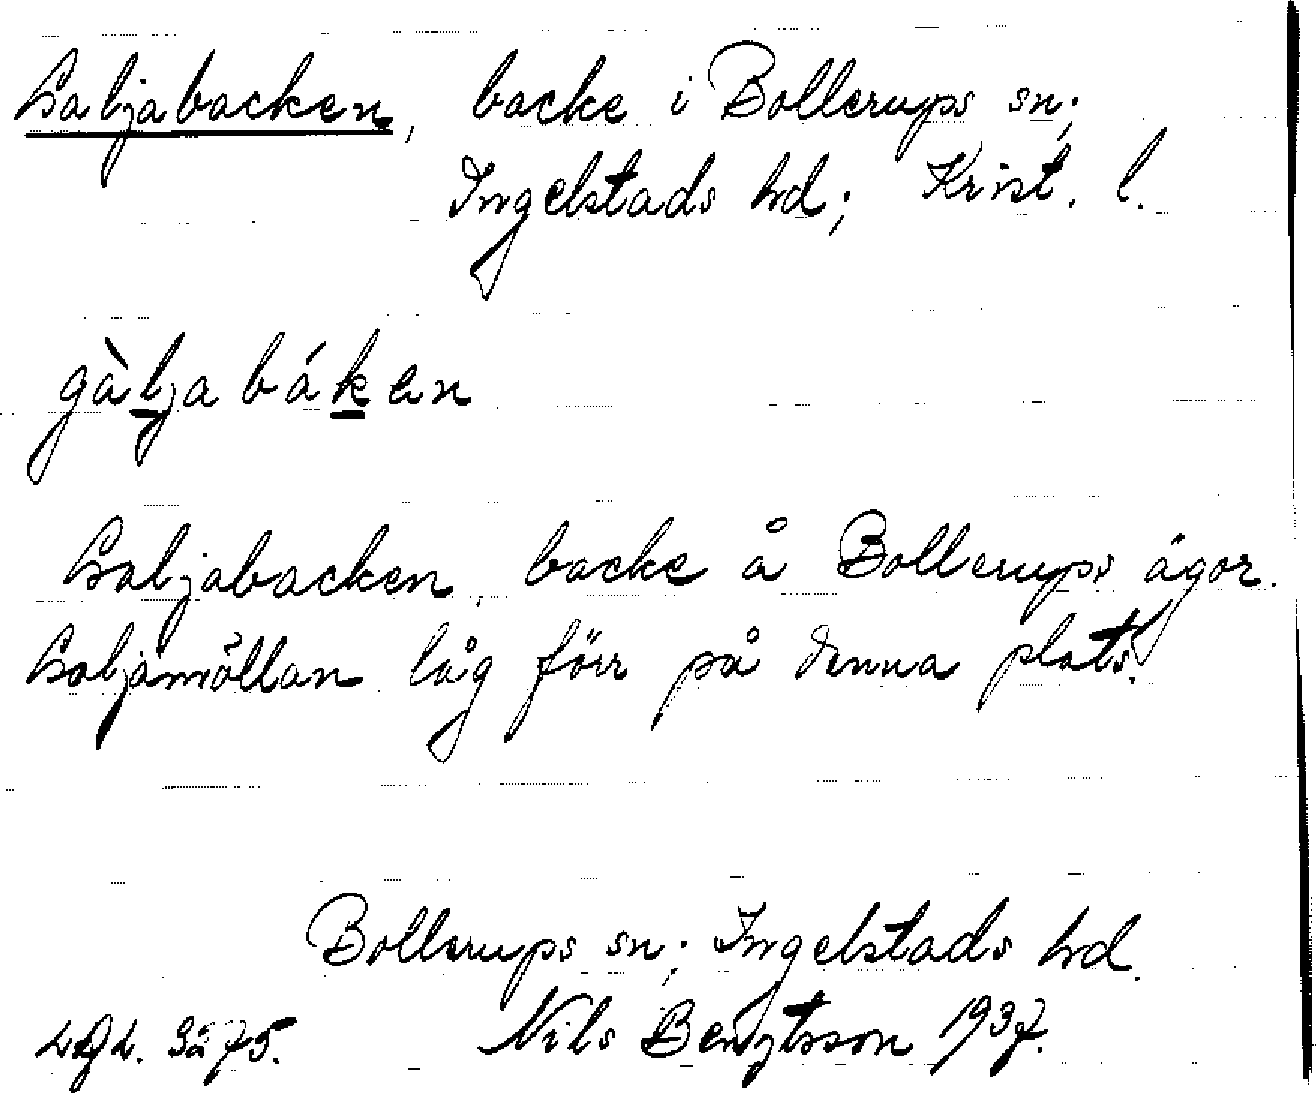 Galjabacken, backe i Bollerups sn;
Ingelstads hd; Krist. l.
gàlja báken
Galjabacken, backe å Bollerups ägor.
Galjamöllan låg förr på denna plats.
Bollerups sn; Ingelstads hd.
Nils Bengtsson 1937.